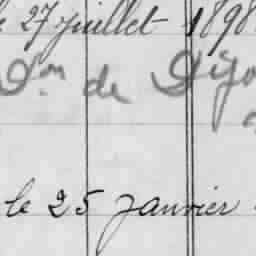 le 27 juillet 1898
Don de Dijo
le 25 janvier